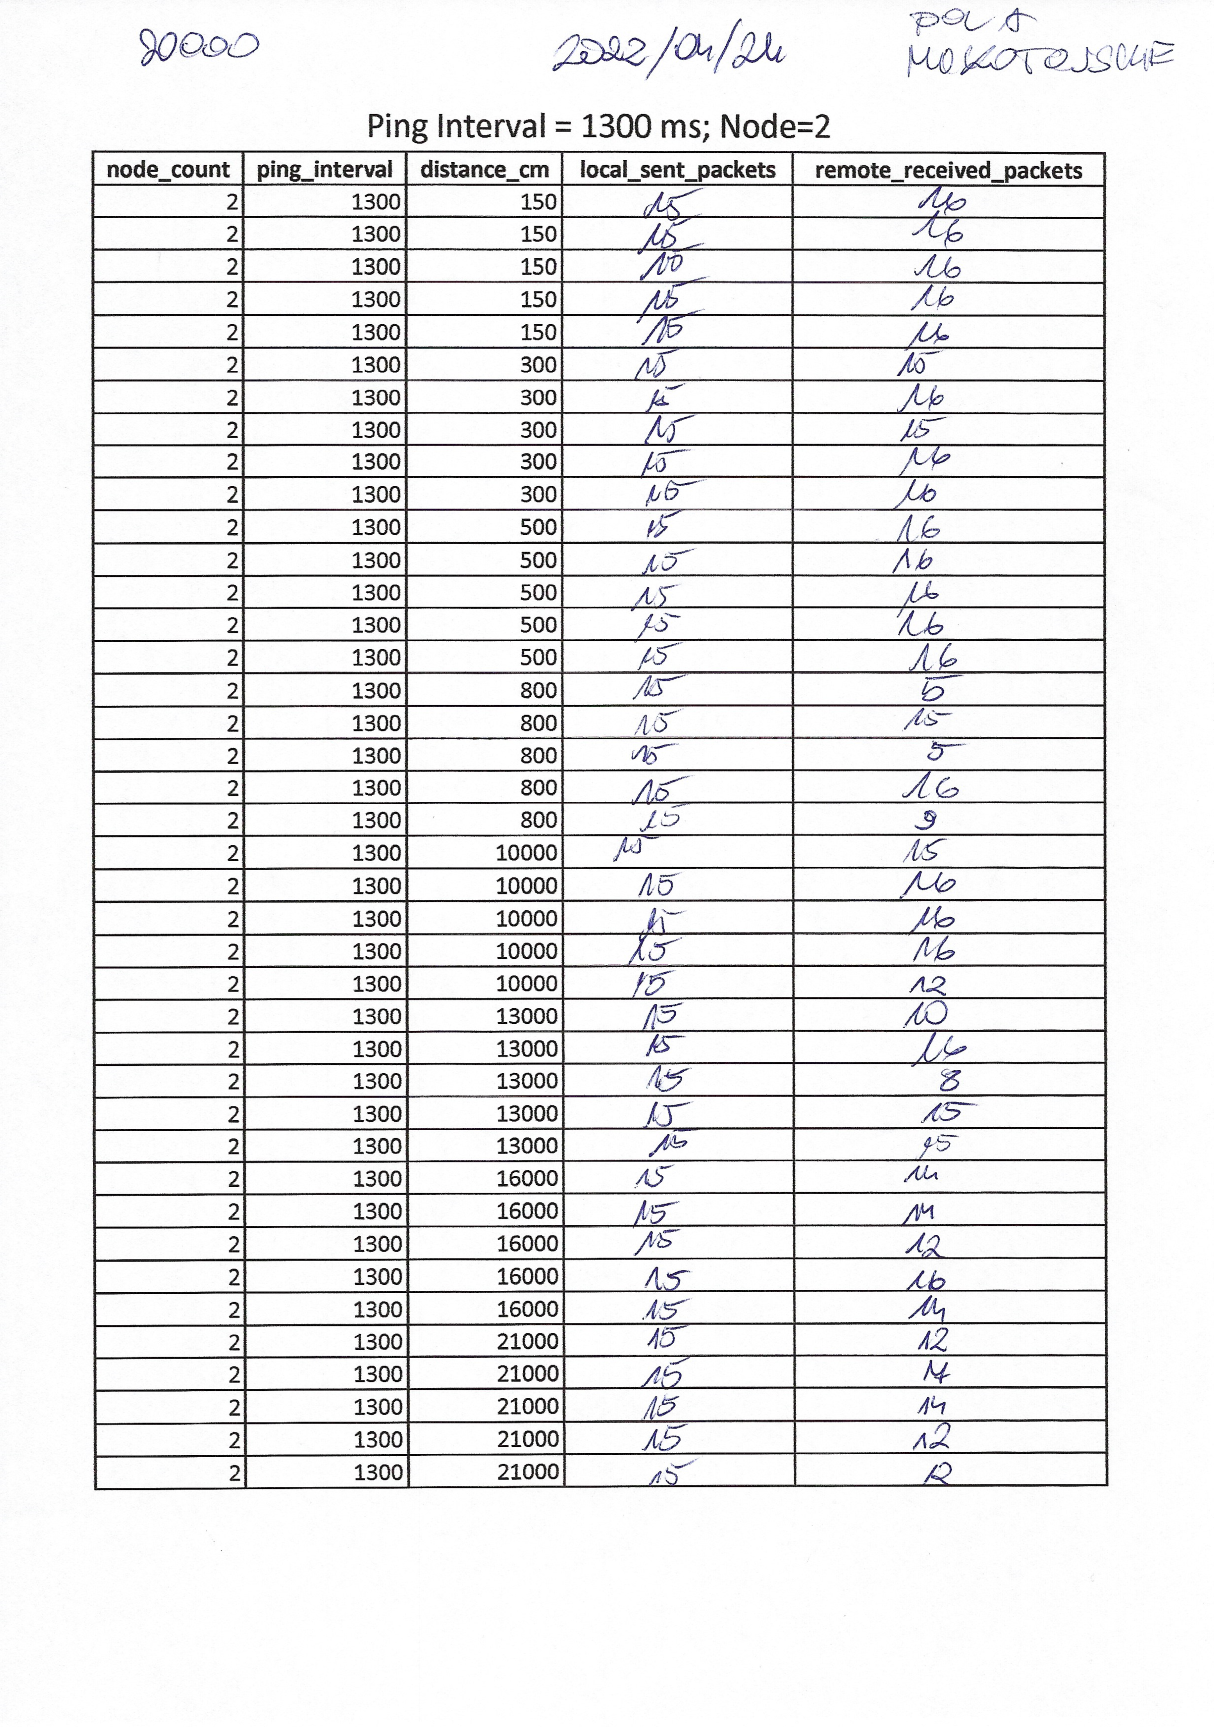 20000 2022/04/24 POLA
MOKOTOWSKIE
Ping Interval = 1300 ms; Node=2
node_count ping_interval distance_cm local_sent_packets remote_received_packets
2 1300 150 15 16
2 1300 150 15 16
2 1300 150 10 16
2 1300 150 15 16
2 1300 150 15 16
2 1300 300 15 15
2 1300 300 15 16
2 1300 300 15 15
2 1300 300 15 16
2 1300 300 15 16
2 1300 500 15 16
2 1300 500 15 16
2 1300 500 15 16
2 1300 500 15 16
2 1300 500 15 16
2 1300 800 15 5
2 1300 800 15 15
2 1300 800 15 5
2 1300 800 15 16
2 1300 800 15 9
2 1300 10000 15 15
2 1300 10000 15 16
2 1300 10000 15 16
2 1300 10000 15 16
2 1300 10000 15 12
2 1300 13000 15 10
2 1300 13000 15 16
2 1300 13000 15 8
2 1300 13000 15 15
2 1300 13000 15 15
2 1300 16000 15 14
2 1300 16000 15 14
2 1300 16000 15 12
2 1300 16000 15 16
2 1300 16000 15 14
2 1300 21000 15 12
2 1300 21000 15
2 1300 21000 15 14
2 1300 21000 15 12
2 1300 21000 15 12